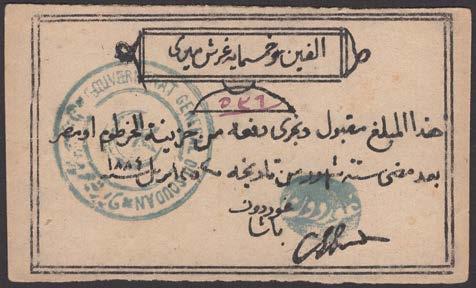 الفين وخمسماية غرش ميرى
٥٤٦
هذا المبلغ مقبول ويجرى دفعه من خزينة الخرطوم او مصر
بعد مضى ستة شهور من تاريخه ٢٥ ابريل ١٨٨٤
غوردون
باشا
GOUVERNORAT GENERAL DU SOUDAN